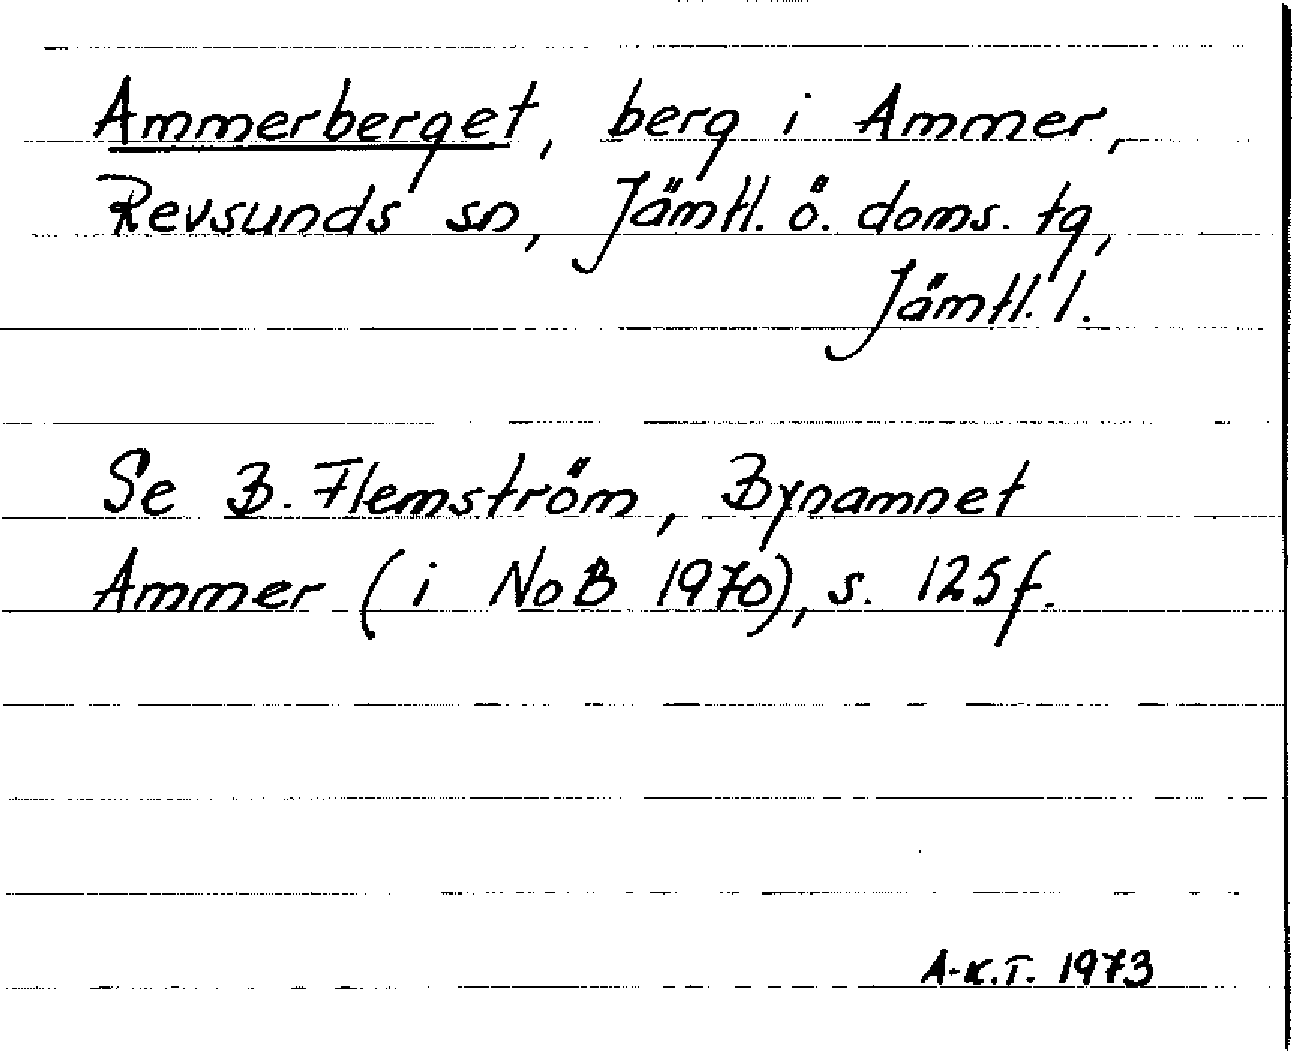 Ammerberget, berg i Ammer,
Revsunds sn, Jämtl. ö. doms. tg,
Jämtl. l.
Se B. Flemström, Bynamnet
Ammer (i NoB 1970), s. 125 f.
A-K.T. 1973